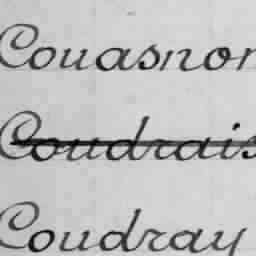 Couasnon
Coudrais
Coudray